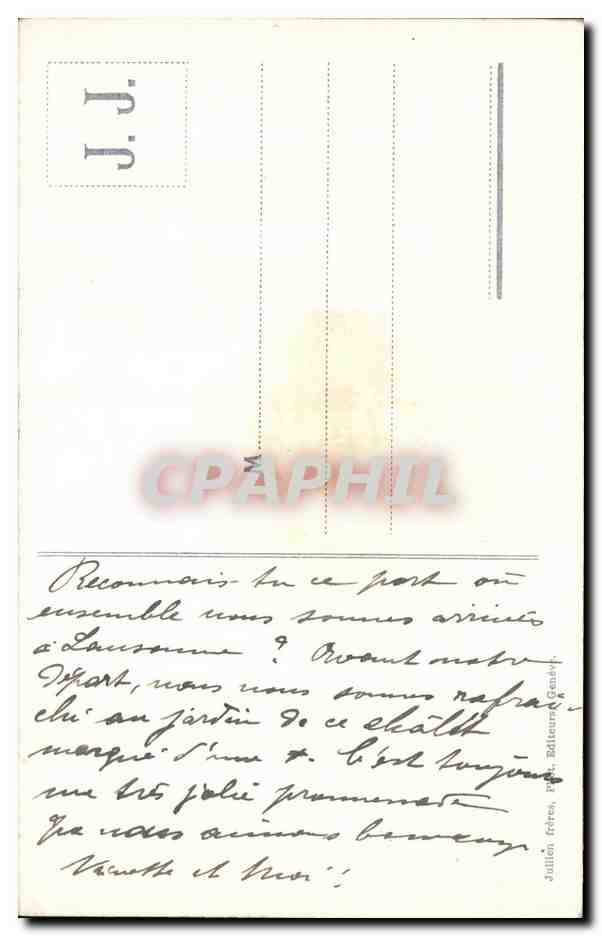 J. J.
M
CPAPHIL
Reconnais-tu ce port où
ensemble nous sommes arrivés
à Lausanne ? Avant notre
départ, nous nous sommes rafraî-
chi au jardin de ce châlet
marqué d'une +. C'est toujours
une très jolie promenade
que nous aimons beaucoup
et Moi !
Jullien frères, Phot. Editeurs, Genève.